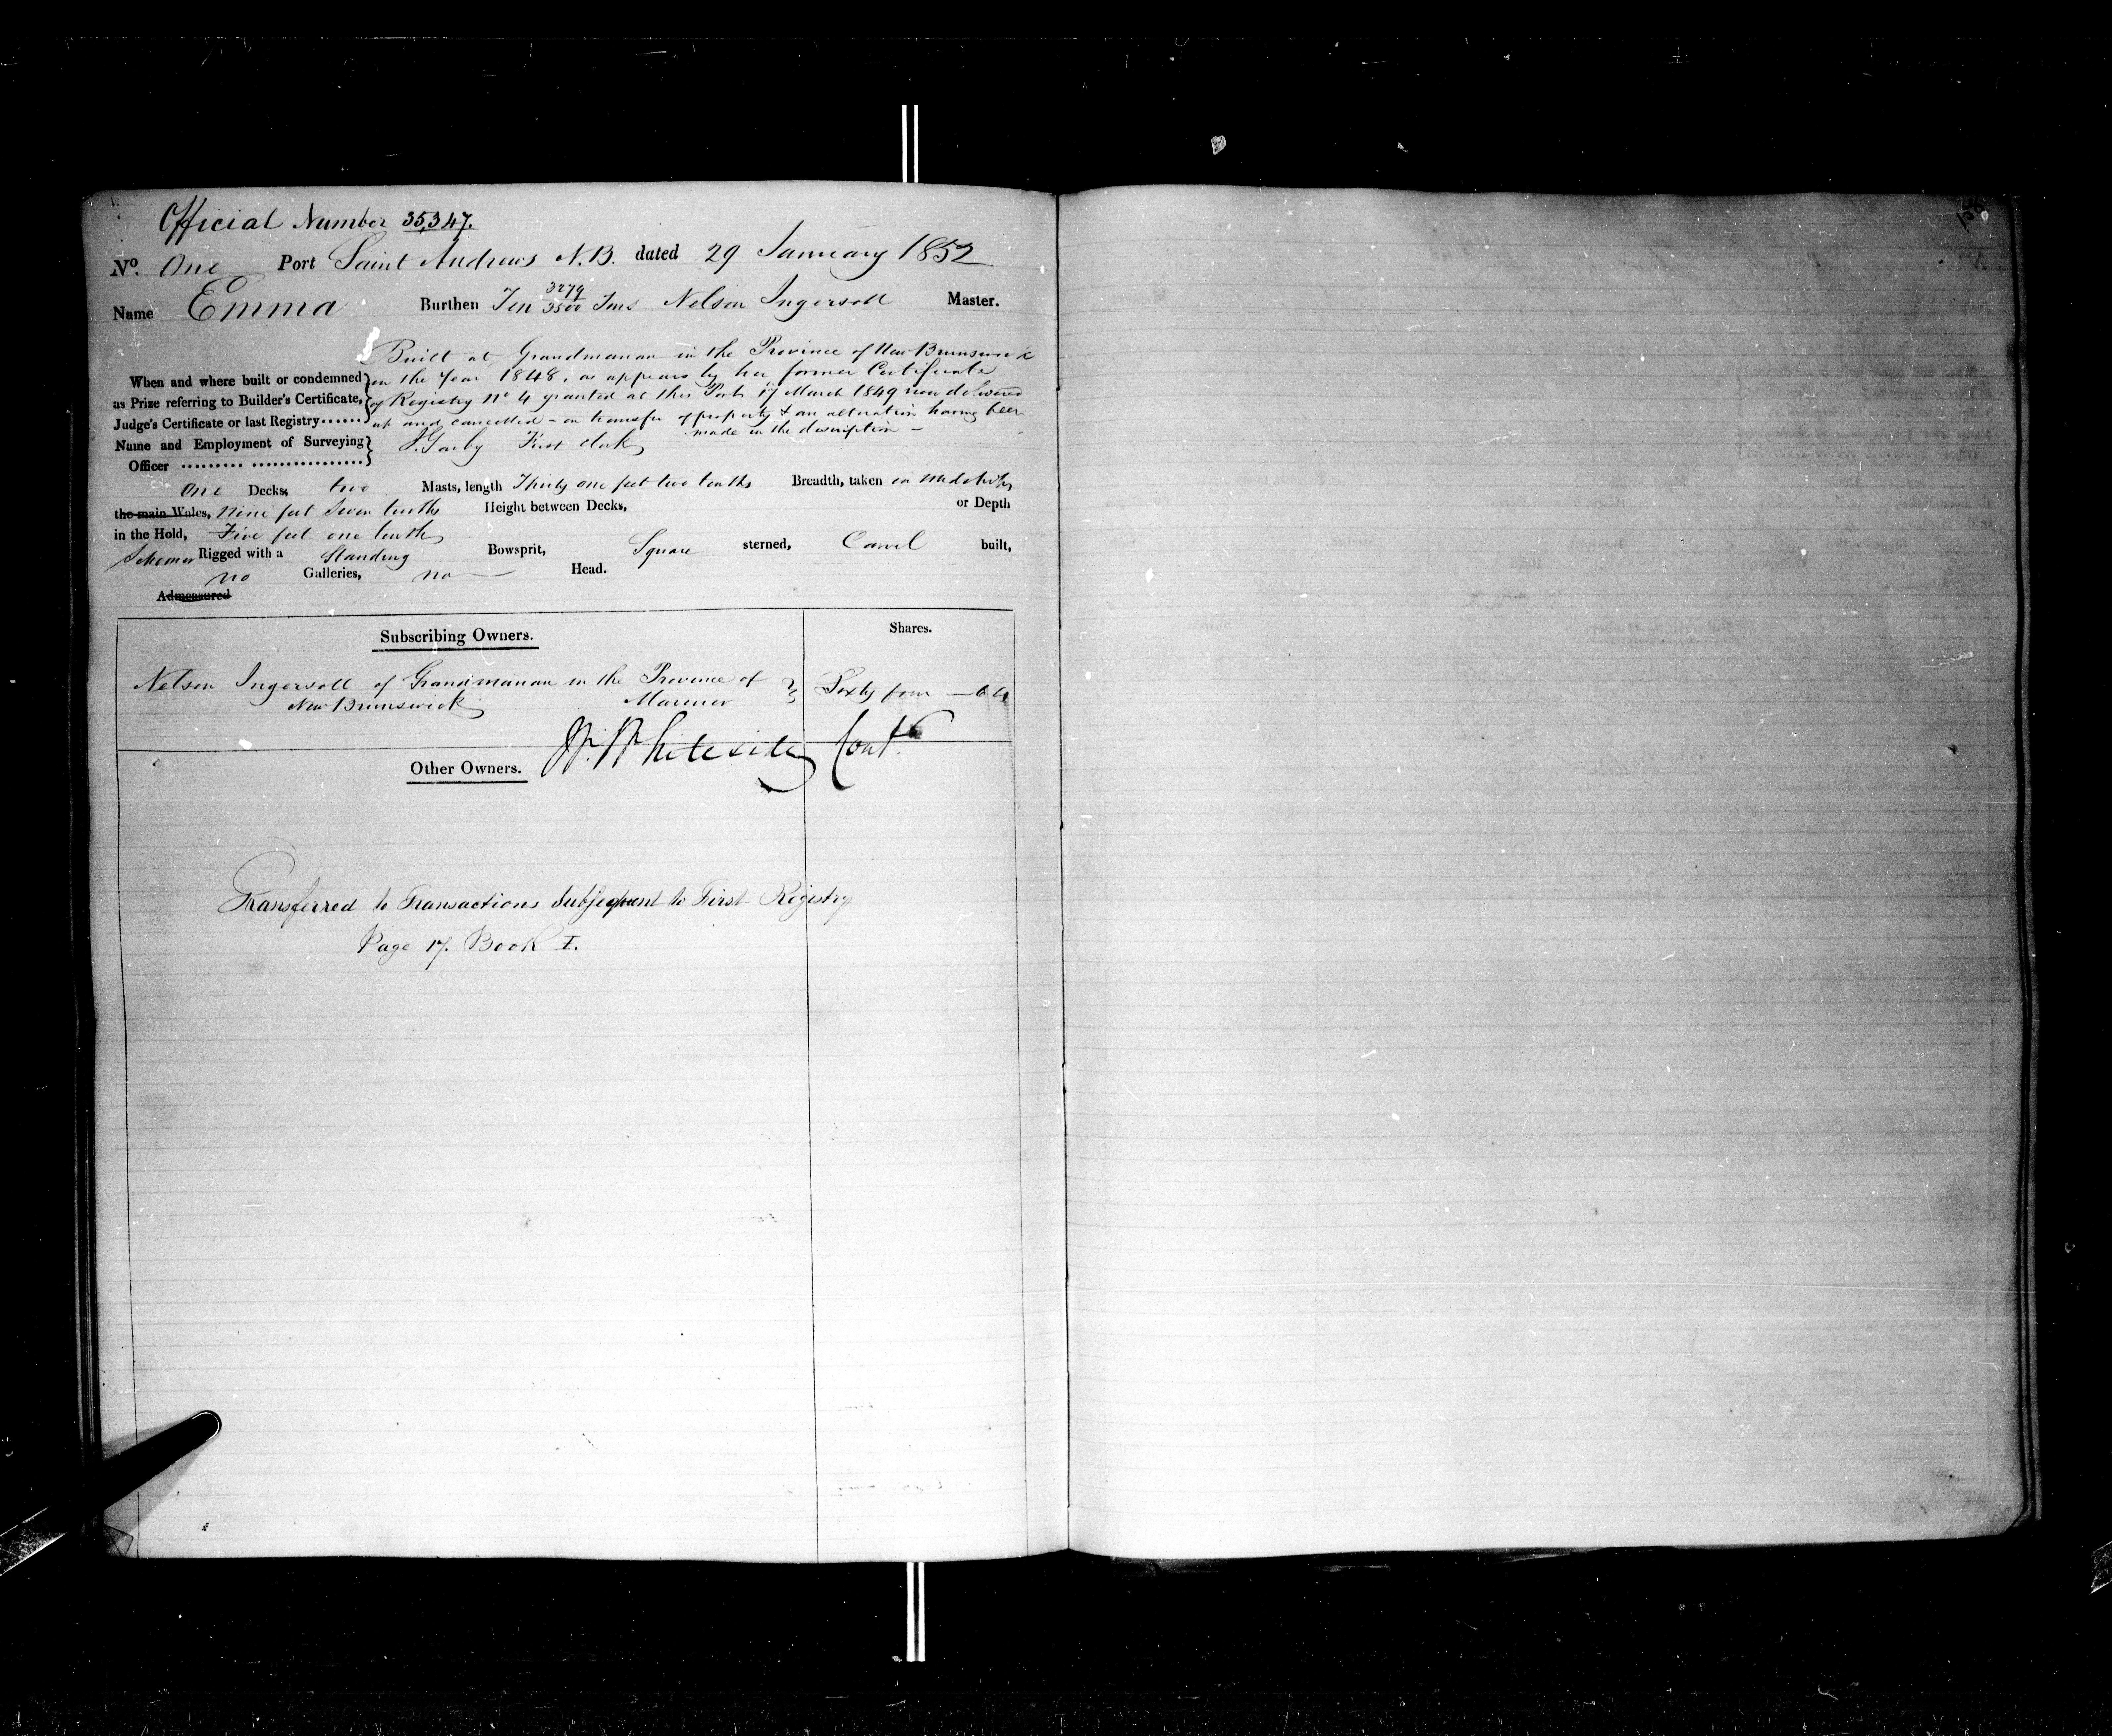 Official Number 35,347.
No. One Port Saint Andrews N.B. dated 29 January 1852
Name Emma Burthen Ten 3279/3500 Tons Nelson Ingersoll Master.
Built at Grandmanan in the Province of New Brunswick
When and where built or condemned in the Year 1848, as appears by her former Certificate
as Prize referring to Builder's Certificate, of Registry No 4 granted at this Port 17 March 1849 now delivered
Judge's Certificate or last Registry...... up and cancelled - on transfer of property & an alteration having been
made in the description -
Name and Employment of Surveying
Officer ......... ................ First Clerk
One Decks, two Masts, length Thirty one feet two tenths Breadth, taken in Midships
the main Wales, Nine feet Seven tenths Height between Decks, or Depth
in the Hold, Five feet one tenth
Schooner Rigged with a Standing Bowsprit, Square sterned, Carvel built,
no Galleries, no Head.
Admeasured
Subscribing Owners. Shares.
Nelson Ingersoll of Grandmanan in the Province of
New Brunswick Mariner Sixty four — 64
Whiteside Cont.
Other Owners.
Transferred to Transactions Subsequent to First Registry
Page 17. Book I.